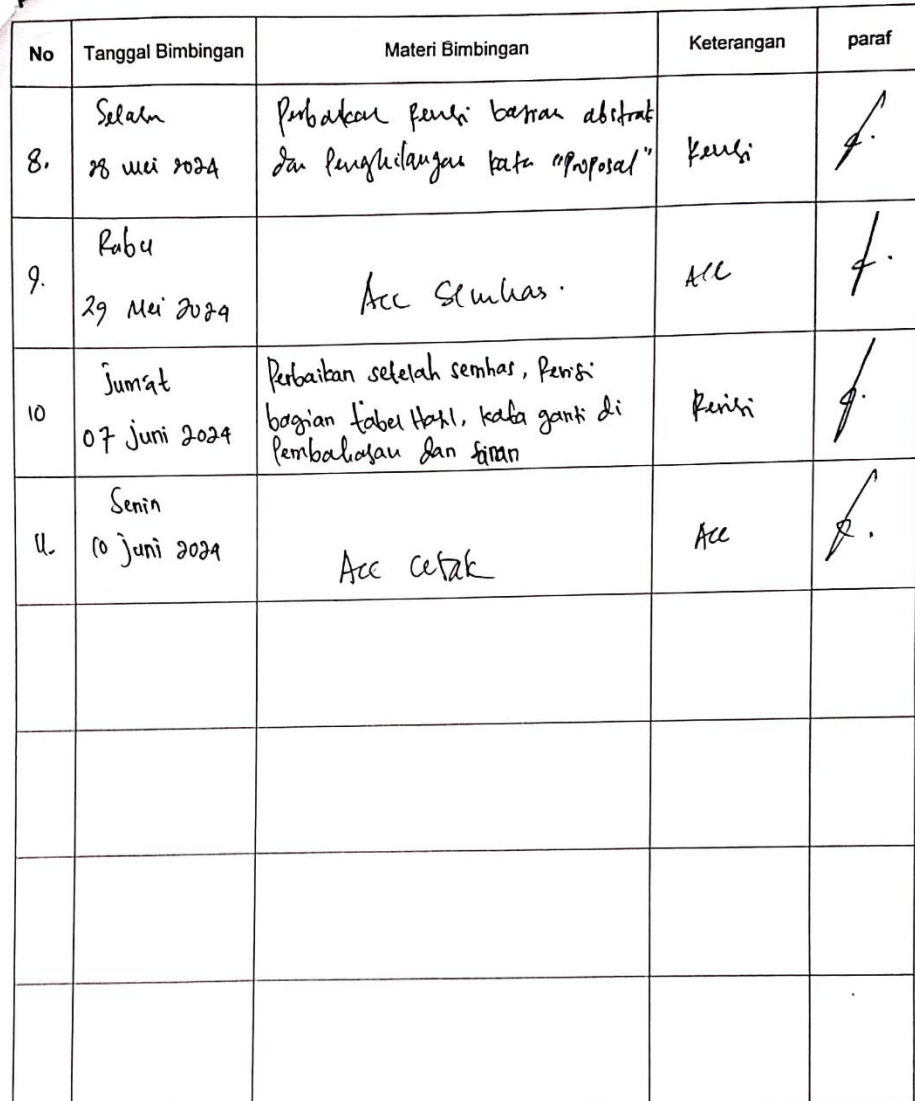 No Tanggal Bimbingan Materi Bimbingan Keterangan paraf
8. Selasa
28 mei 2024
Perbaikan Revisi bagian abstrak
dan Penghilangan kata "Proposal"
Revisi
9. Rabu
29 Mei 2024
Acc Semhas.
Acc
10 Jumat
07 Juni 2024
Perbaikan setelah semhas, Revisi
bagian tabel Hasil, kata ganti di
Pembahasan dan saran
Revisi
11. Senin
10 Juni 2024
Acc cetak
Acc